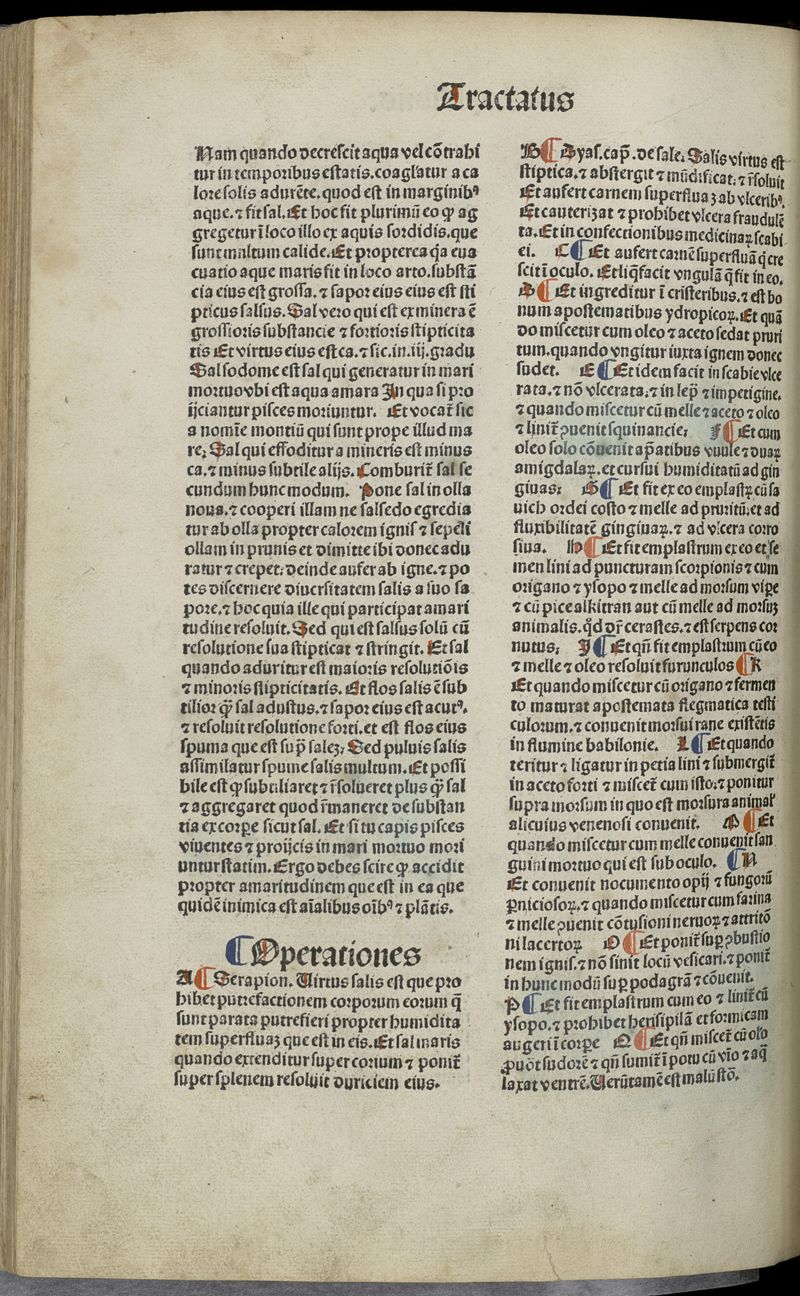 Tractatus
Nam quando decrescit aqua vel cõtrahi
tur in temporibus estatis. coagłatur a ca
lore solis adurẽte. quod est in marginibꝰ
aque. ⁊ fit sal. Et hoc fit plurimũ eo ꝙ ag
gregetur ĩ loco illo ex aquis sordidis. que
sunt multum calide. Et propterea q̃a eua
cuatio aque maris fit in loco arto. substã
cia eius est grossa. ⁊ sapor eius eius est sti
pticus salsus. Sal vero qui est ex minera ẽ
grossioris substancie ⁊ fortioris stipticita
tis Et virtus eius est ca. ⁊ sic. in. iij. gradu
Sal sodome est sal qui generatur in mari
mortuo vbi est aqua amara In qua si pro
ijciantur pisces moriuntur. Et vocat̃ sic
a nomĩe montiũ qui sunt prope illud ma
re; Sal qui effoditur a mineris est minus
ca. ⁊ minus subtile alijs. Comburit̃ sal se
cundum hunc modum. Pone sal in olla
noua. ⁊ cooperi illam ne salsedo egredia
tur ab olla propter calorem ignis ⁊ sepeli
ollam in prunis et dimitte ibi donec adu
ratur ⁊ crepet; deinde aufer ab igne. ⁊ po
tes discernere diuersitatem salis a suo sa
pore. ⁊ hoc quia ille qui participat amari
tudine resoluit. Sed qui est salsus solũ cũ
resolutione sua stipticat ⁊ stringit. Et sal
quando aduritur est maioris resolutiõis
⁊ minoris stipticitatis. At flos salis ẽ sub
tilior q̃ sal adustus. ⁊ sapor eius est acutꝰ.
⁊ resoluit resolutione forti. et est flos eius
spuma que est sup̃ salez; Sed puluis salis
assimilatur spume salis multum. Et possi
bile est ꝙ subtiliaret̃ ⁊ r̃solueret plus q̃ sal
⁊ aggregaret quod r̃maneret de substan
tia ex corpe sicut sal. Et si tu capis pisces
viuentes ⁊ proijcis in mari mortuo mori
untur statim. Ergo debes scire ꝙ accidit
propter amaritudinem que est in ea que
quidẽ inimica est aĩalibus oĩbꝰ ⁊ plãtis.
¶ Operationes
A ¶ Serapion. Virtus salis est que pro
hibet putrefactionem corporum eorum q̃
sunt parata putrefieri propter humidita
tem superfluaz que est in eis. Et sal maris
quando extenditur super corium ⁊ ponit̃
super splenem resoluit duriciem eius.
B ¶ Dyas. cap̃. de sale. Salis virtus est
stiptica. ⁊ abstergit ⁊ mũdificat. ⁊ r̃soluit
Et aufert carnem superfluaz ab vlceribꝰ.
Et cauterizat ⁊ prohibet vlcera fraudulẽ
ta. Et in confectionibus medicinaꝝ scabi
ei. C ¶ Et aufert carnẽ superfluã q̃ cre
scit ĩ oculo. Et liq̃facit vngulã q̃ fit in eo.
D ¶ Et ingredit̃ur ĩ cristeribus. ⁊ est bo
num apostematibus ydropicoꝝ. Et quã
do miscetur cum oleo ⁊ aceto sedat pruri
tum. quando vngitur iuxta ignem donec
sudet. E ¶ Et idem facit in scabie vlce
rata. ⁊ nõ vlcerata. ⁊ in lep̃ ⁊ impetigine.
⁊ quando miscetur cũ melle ⁊ aceto ⁊ oleo
⁊ linit̃ ꝯuenit squinancie; F ¶ Et cum
oleo solo cõuenit ap̃atibus vuule ⁊ duaꝝ
amigdalaꝝ. et cursui humiditatũ ad gin
giuas; G ¶ Et fit ex eo emplastꝝ cũ sa
uich ordei costo ⁊ melle ad pruritũ. et ad
fluxibilitatẽ gingiuaꝝ. ⁊ ad vlcera corro
siua. H ¶ Et fit emplastrum ex eo et se
men lini ad puncturam scorpionis ⁊ cum
origano ⁊ ysopo ⁊ melle ad morsum vipe
⁊ cũ pice alkitran aut cũ melle ad morsuz
animalis. q̃d dr̃ cerastes. ⁊ est serpens cor
nutus; I ¶ Et qñ fit emplastrum cũ eo
⁊ melle ⁊ oleo resoluit furunculos ¶ K
Et quando miscetur cũ origano ⁊ fermen
to maturat apostemata flegmatica testi
culorum. ⁊ conuenit morsui rane existẽtis
in flumine babilonie. L ¶ Et quando
teritur ⁊ ligatur in petia lini ⁊ submergit̃
in aceto forti ⁊ miscet̃ cum isto. ⁊ ponitur
supra morsum in quo est morsura animał
alicuius venenosi conuenit. M ¶ Et
quando miscetur cum melle conuenit san
guini mortuo qui est sub oculo. ¶ N
Et conuenit nocumento opij ⁊ fungorũ
ꝑniciosoꝝ. ⁊ quando miscetur cum farina
⁊ melle ꝯuenit cõtusioni neruoꝝ ⁊ attritõ
ni lacertoꝝ O ¶ Et ponit̃ suꝑ ꝯbustio
nem ignis. ⁊ nõ sinit locũ vesicari. ⁊ ponit̃
in hunc modũ suꝑ podagrã ⁊ cõuenit.
P ¶ Et fit emplastrum cum eo ⁊ linit̃ cũ
ysopo. ⁊ prohibet herisipilã et formicam
augeri ĩ corpe Q ¶ Et qñ miscet̃ cũ olo
ꝓuõt sudorẽ ⁊ qñ sumit̃ ĩ potu cũ vĩo ⁊ aq̃
laxat ventrẽ. Verũtamẽ est malũ stõ.